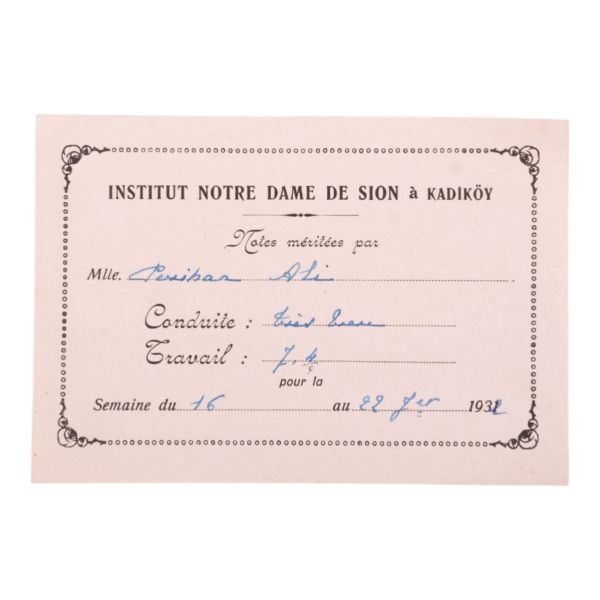 INSTITUT NOTRE DAME DE SION à KADIKÖY
Notes méritées par
Mlle. Perihan Ali
Conduite : très
Travail : 7,4
pour la
Semaine du 16 au 22 Jer 1932